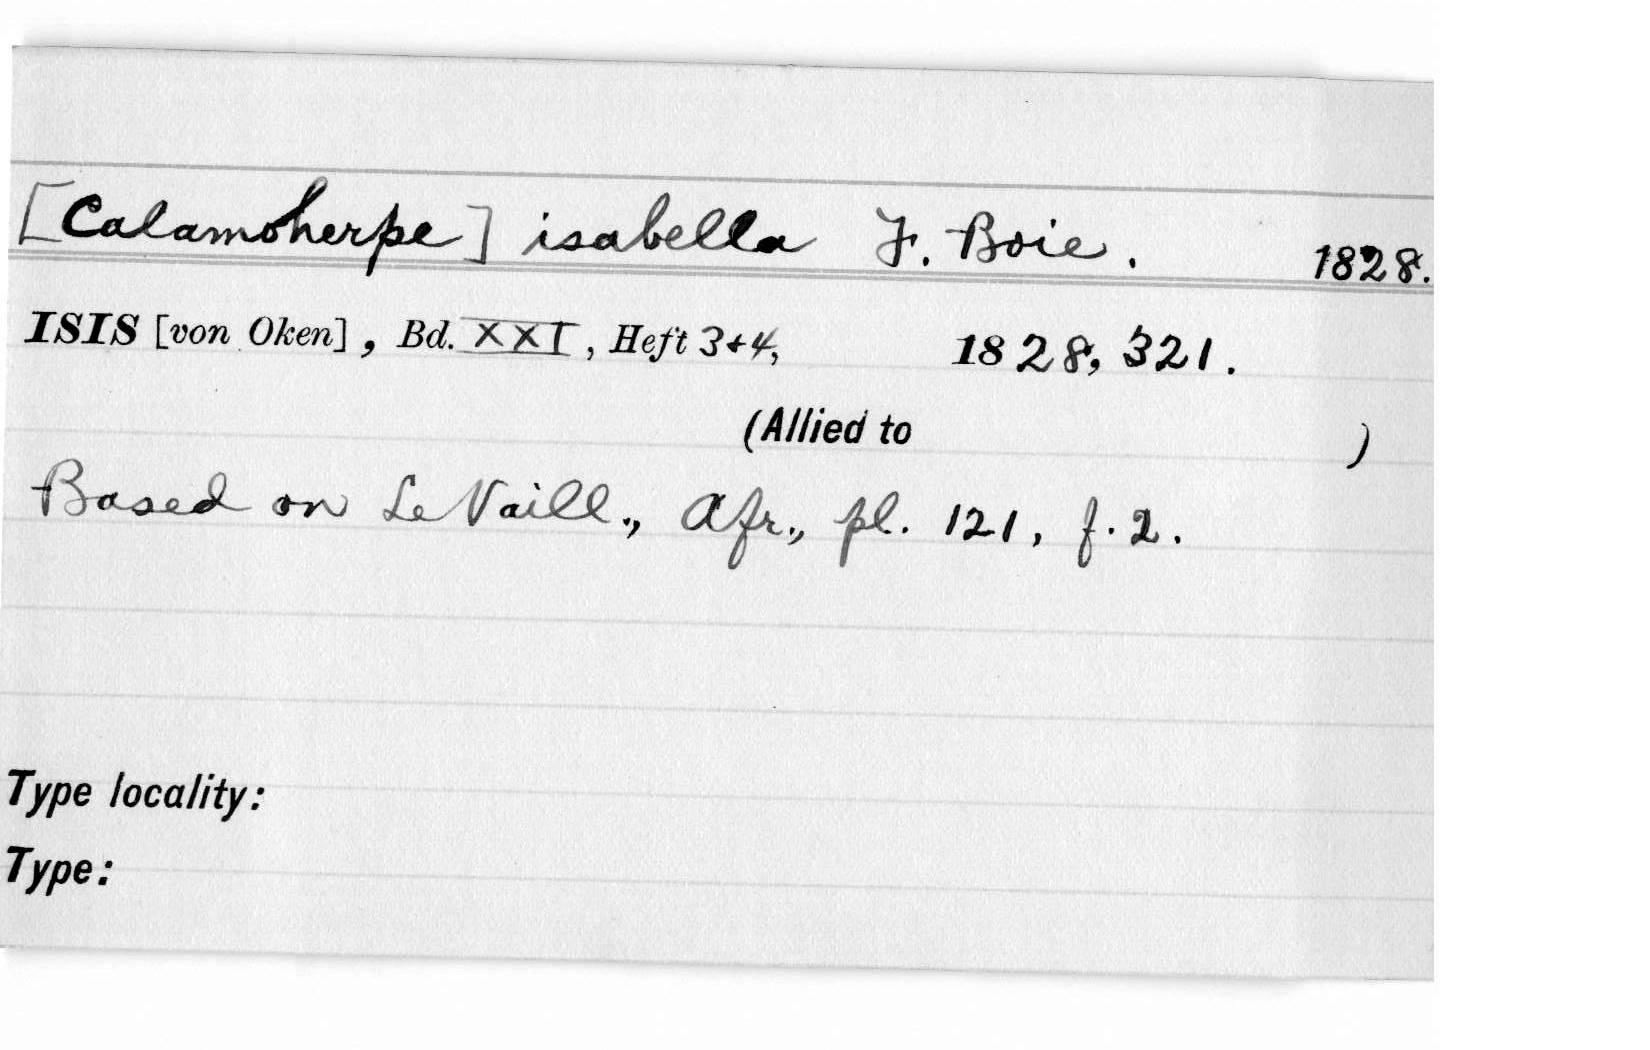 [Calamoherpe] isabella F. Boie. 1828.
ISIS [von Oken], Bd. XXI, Heft 3+4, 1828, 321.
(Allied to )
Based on Le Vaill., Afr., pl. 121, f. 2.
Type locality:
Type: